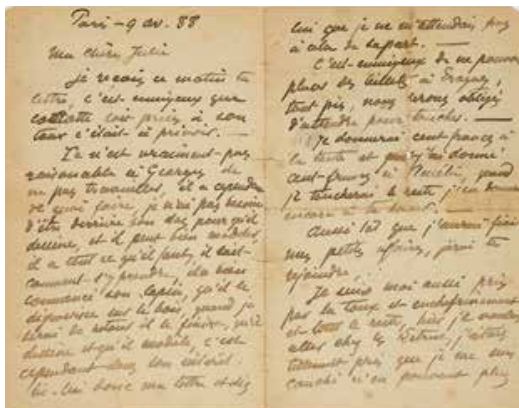 Paris – 9 av. 88
Ma chère Julie
Je reçois ce matin ta
lettre, c'est ennuyeux que
cocotte soit prise à son
tour c'était à prévoir. —
Ce n'est vraiment pas
raisonable à Georges de
ne pas travailler, il a cependant
de quoi faire, je n'ai pas besoin
d'être derrière son dos pour qu'il
dessine, et il peut bien modeler,
il a tout ce qu'il faut, il sait
comment s'y prendre, il a
commencé son lapin, qu'il le
dégrossisse sur le bois, quand je
serai de retour il le finira, qu'il
dessine et qu'il modèle, c'est
cependant dans son intérêt.
lis-lui donc ma lettre et dis
lui que je ne m'attendais pas
à cela de sa part. —
C'est ennuyeux de ne pouvoir
placer des billets à
tant pis, nous serons obligé
d'attendre pour —
Je donnerai cent francs à
la tante et puis j'ai donné
cent francs à quand
je toucherai le reste j'en donnerai
encore à la
Aussitôt que j'aurai fini
mes petites affaires, j'irai te
rejoindre
Je suis moi aussi pris
par la toux et enchifrènement
et tout le reste, hier je voulais
aller chez les j'étais
tellement pris que je me suis
couché n'en pouvant plus